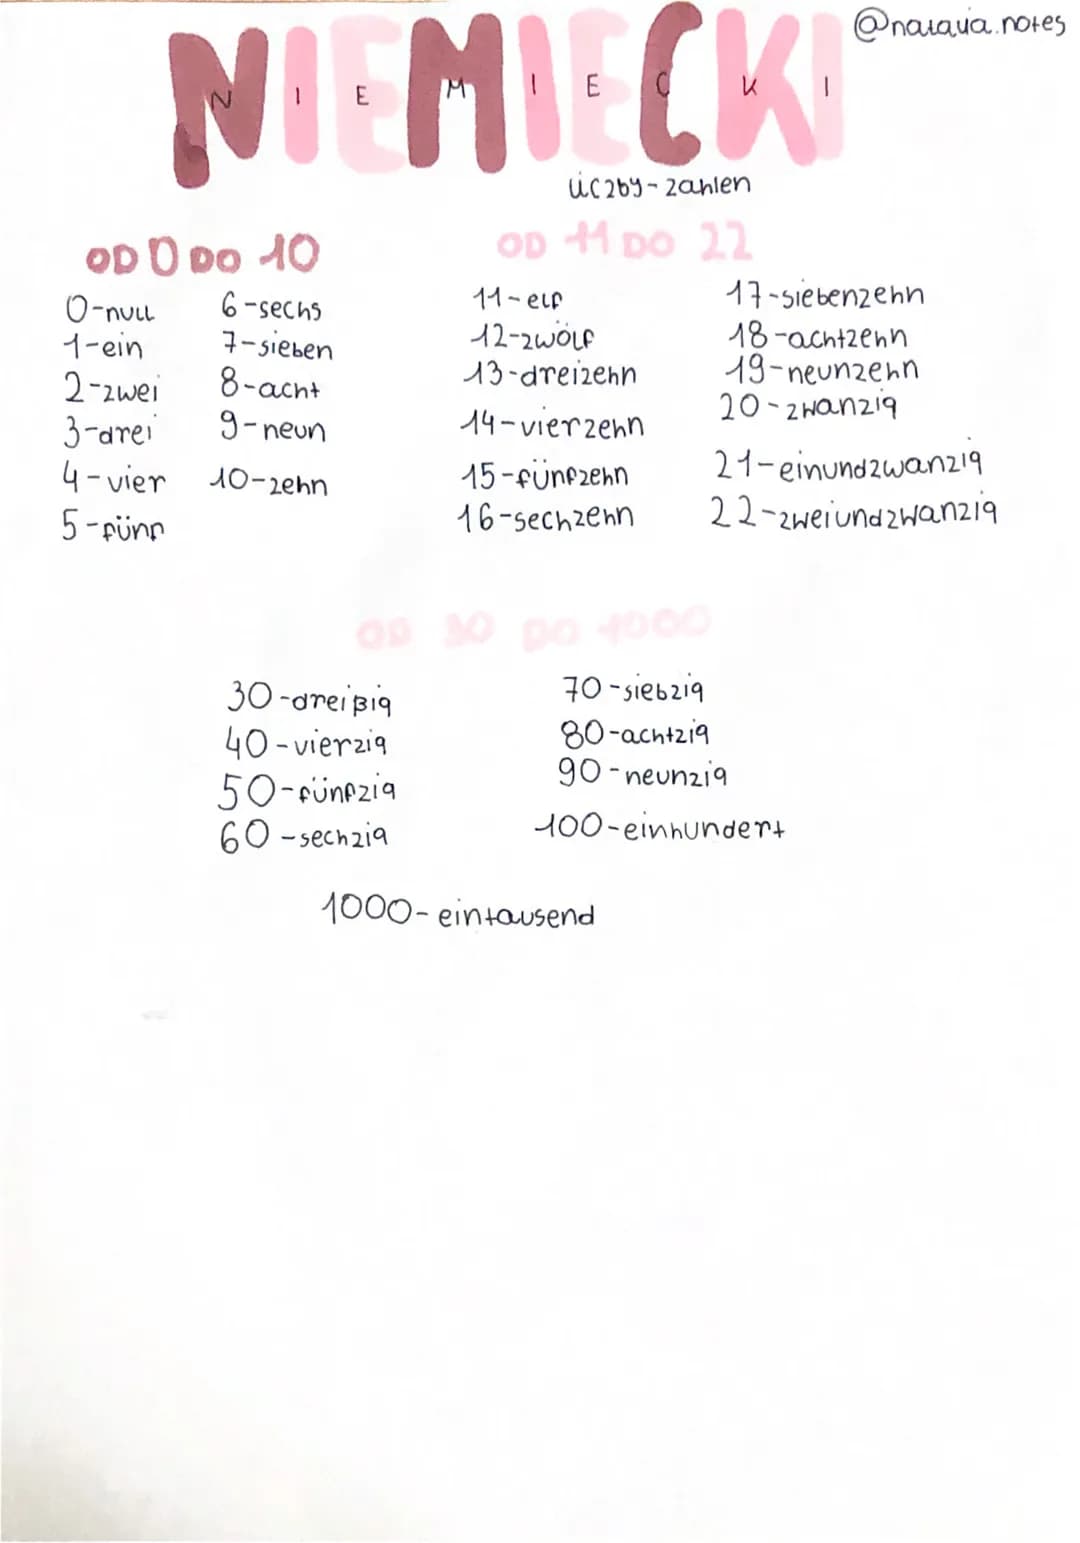 @natalia.notes
NIEMIECKI
N I E M I E C K I
liczby-zahlen
OD 0 DO 10
0-null
1-ein
2-zwei
3-drei
4-vier
5-fünf
6-sechs
7-sieben
8-acht
9-neun
10-zehn
OD 11 DO 22
11-elf
12-zwölf
13-dreizehn
14-vierzehn
15-fünfzehn
16-sechzehn
17-siebenzehn
18-achtzehn
19-neunzehn
20-zwanzig
21-einundzwanzig
22-zweiundzwanzig
OD 30 DO 1000
30-dreißig
40-vierzig
50-fünfzig
60-sechzig
70-siebzig
80-achtzig
90-neunzig
100-einhundert
1000-eintausend